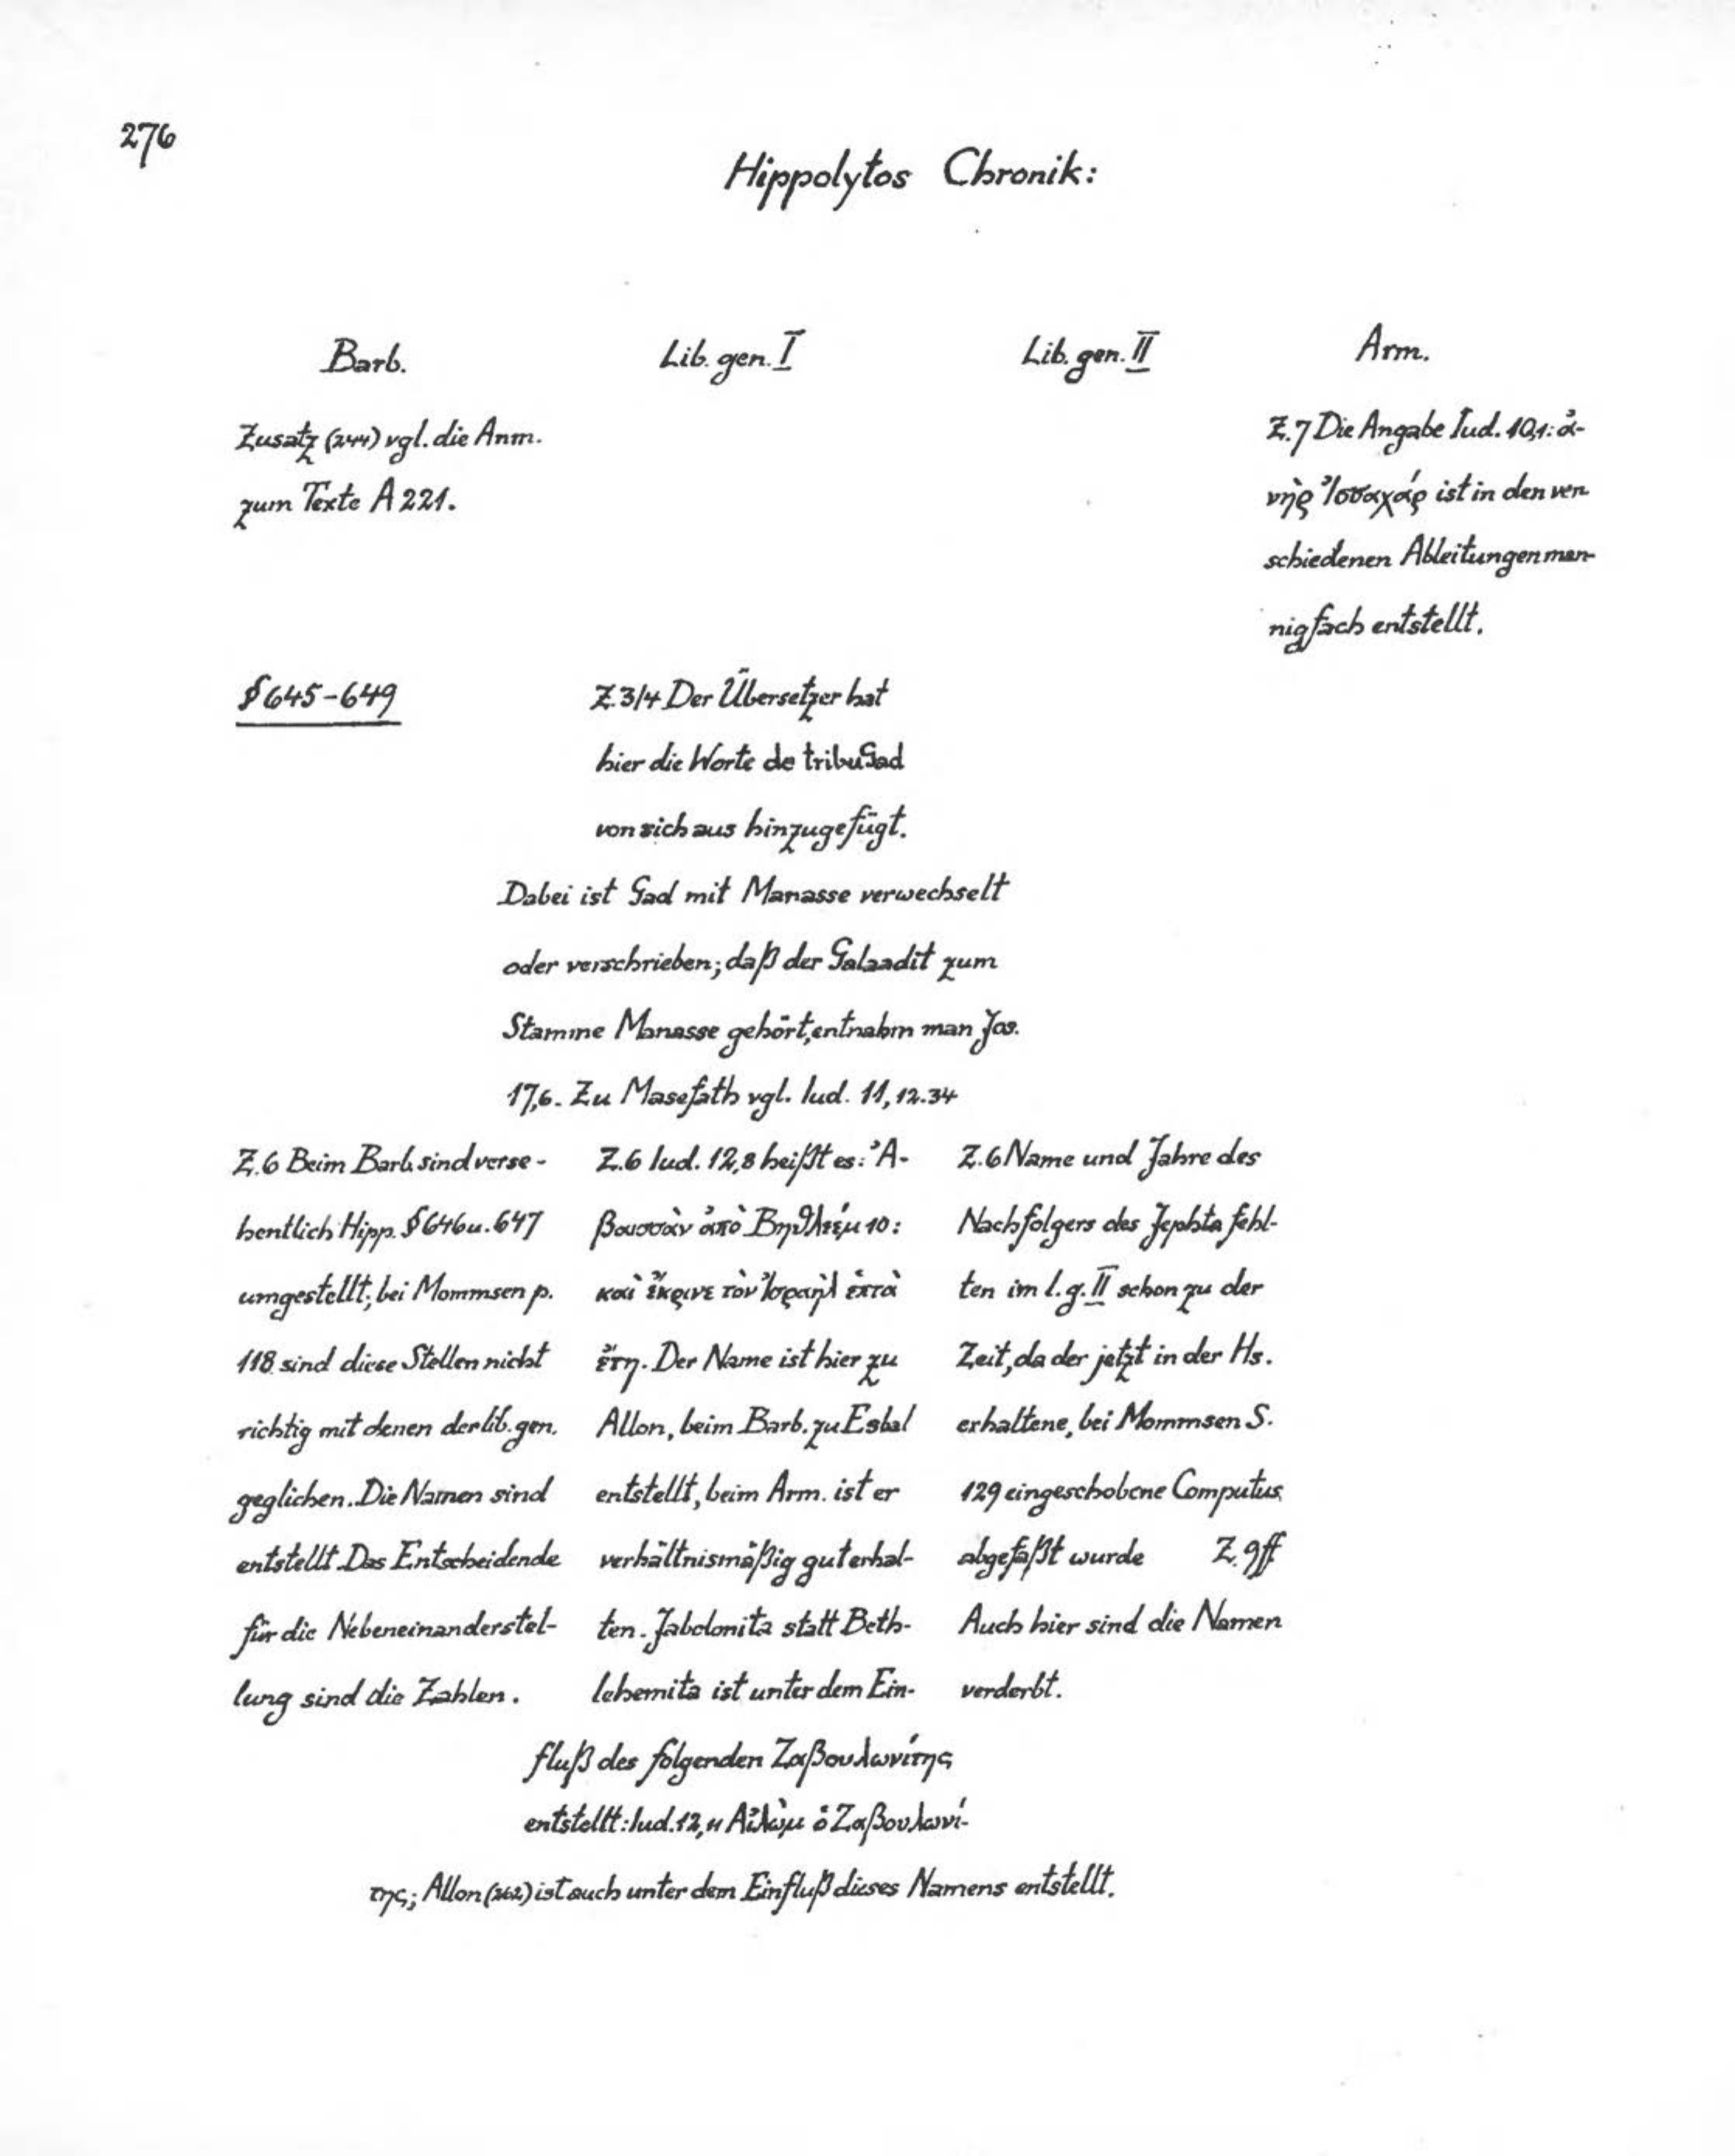 276
Hippolytos Chronik:
Barb.
Lib. gen. I
Lib. gen. II
Arm.
Zusatz (244) vgl. die Anm.
zum Texte A 221.
Z. 7 Die Angabe Iud. 10,1: ἀ-
νὴρ Ἰσσαχάρ ist in den ver
schiedenen Ableitungen man-
nigfach entstellt.
§ 645-649
Z. 3/4 Der Übersetzer hat
hier die Worte de tribu Gad
von sich aus hinzugefügt.
Dabei ist Gad mit Manasse verwechselt
oder verschrieben; daß der Galaadit zum
Stamme Manasse gehört, entnahm man Jos.
17,6. Zu Masefath vgl. Iud. 11, 12.34
Z. 6 Beim Barb. sind verse-
hentlich Hipp. § 646 u. 647
umgestellt; bei Mommsen p.
118 sind diese Stellen nicht
richtig mit denen der lib. gen.
geglichen. Die Namen sind
entstellt. Das Entscheidende
für die Nebeneinanderstel-
lung sind die Zahlen.
Z. 6 Iud. 12,8 heißt es: Ἀ-
βαισσὰν ἀπὸ Βηθλέεμ 10:
καὶ ἔκρινε τὸν Ἰσραὴλ ἑπτὰ
ἔτη. Der Name ist hier zu
Allon, beim Barb. zu Esbal
entstellt, beim Arm. ist er
verhältnismäßig gut erhal-
ten. Jabolonita statt Beth-
lehemita ist unter dem Ein-
fluß des folgenden Ζαβουλωνίτης
entstellt: Iud. 12, 11 Αἰλὼμ ὁ Ζαβουλωνί-
της; Allon (262) ist auch unter dem Einfluß dieses Namens entstellt.
Z. 6 Name und Jahre des
Nachfolgers des Jephta fehl-
ten im l. g. II schon zu der
Zeit, da der jetzt in der Hs.
erhaltene, bei Mommsen S.
129 eingeschobene Computus
abgefaßt wurde Z. 9ff
Auch hier sind die Namen
verderbt.